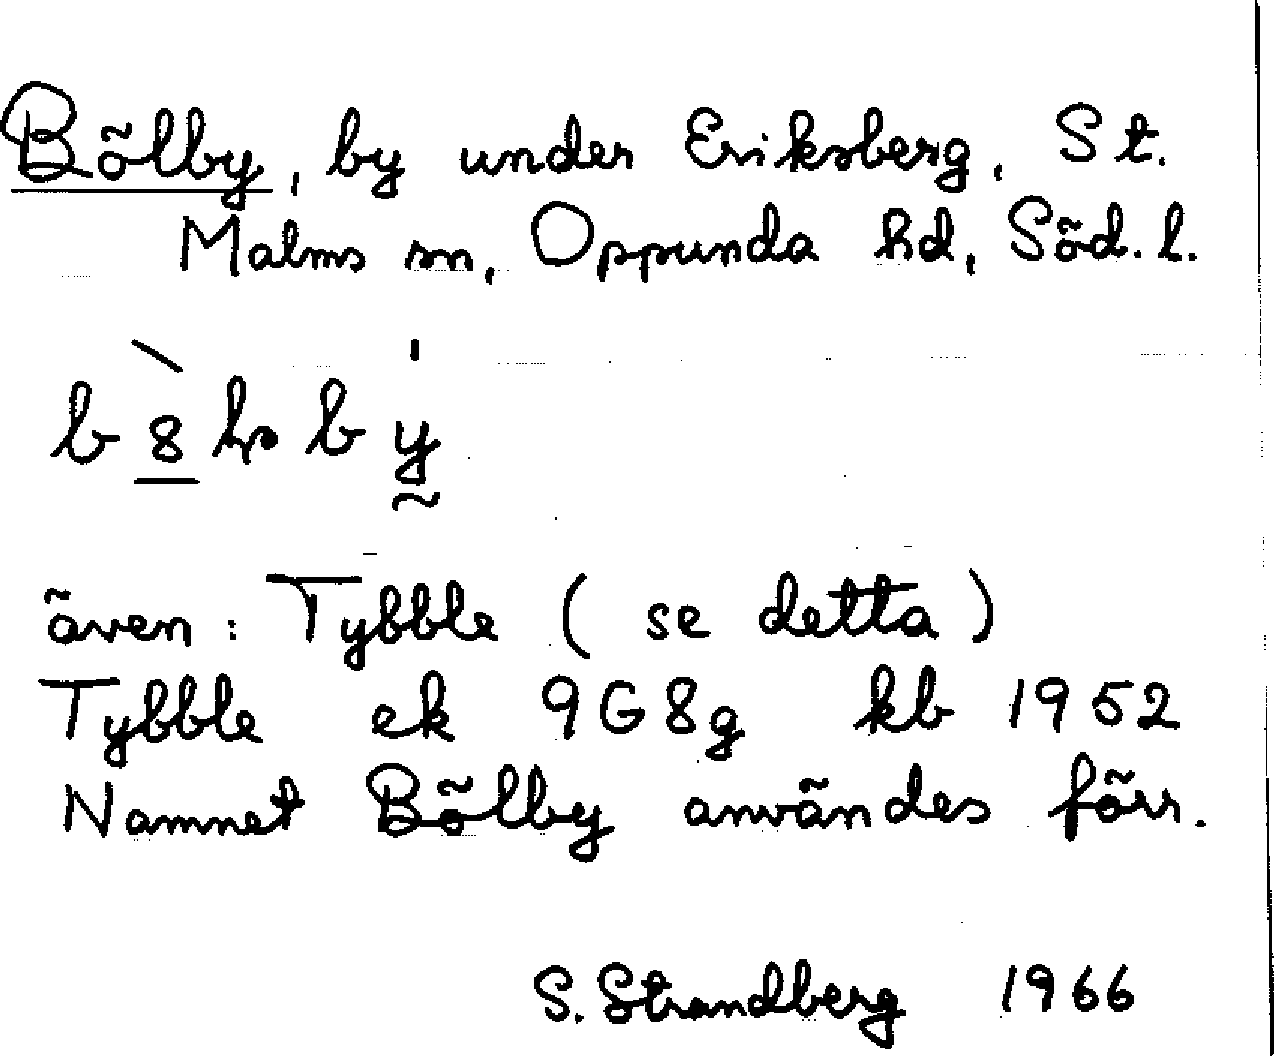 Bölby, by under Eriksberg, St.
Malms sn, Oppunda hd, Söd. l.
även: Tybble (se detta)
Tybble ek 9G8g kb 1952
Namnet Bölby användes förr.
S. Strandberg 1966